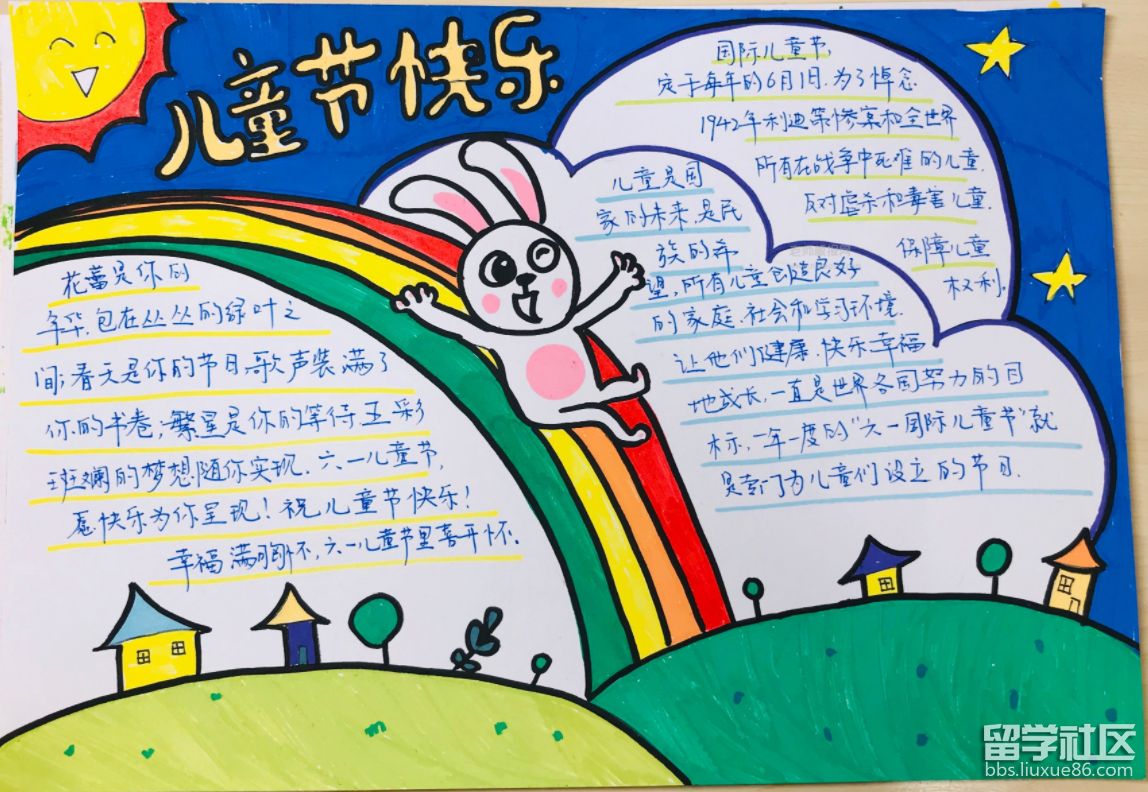 儿童节快乐
国际儿童节,
定于每年的6月1日.为了悼念
1942年利迪策惨案和全世界
所有在战争中死难的儿童,
反对虐杀和毒害儿童.
保障儿童
权利.
儿童是国
家的未来,是民
族的希
望,所有儿童创造良好
的家庭.社会和学习环境.
让他们健康.快乐幸福
地成长,一直是世界各国努力的目
标,一年一度的“六一国际儿童节”就
是专门为儿童们设立的节日.
花蕾是你的
年华,包在丛丛的绿叶之
间;春天是你的节日,歌声装满了
你的书卷,繁星是你的等待,五彩
斑斓的梦想随你实现.六一儿童节,
愿快乐为你呈现!祝儿童节快乐!
幸福满胸怀,六一儿童节里喜开怀.
留学社区
bbs.liuxue86.com